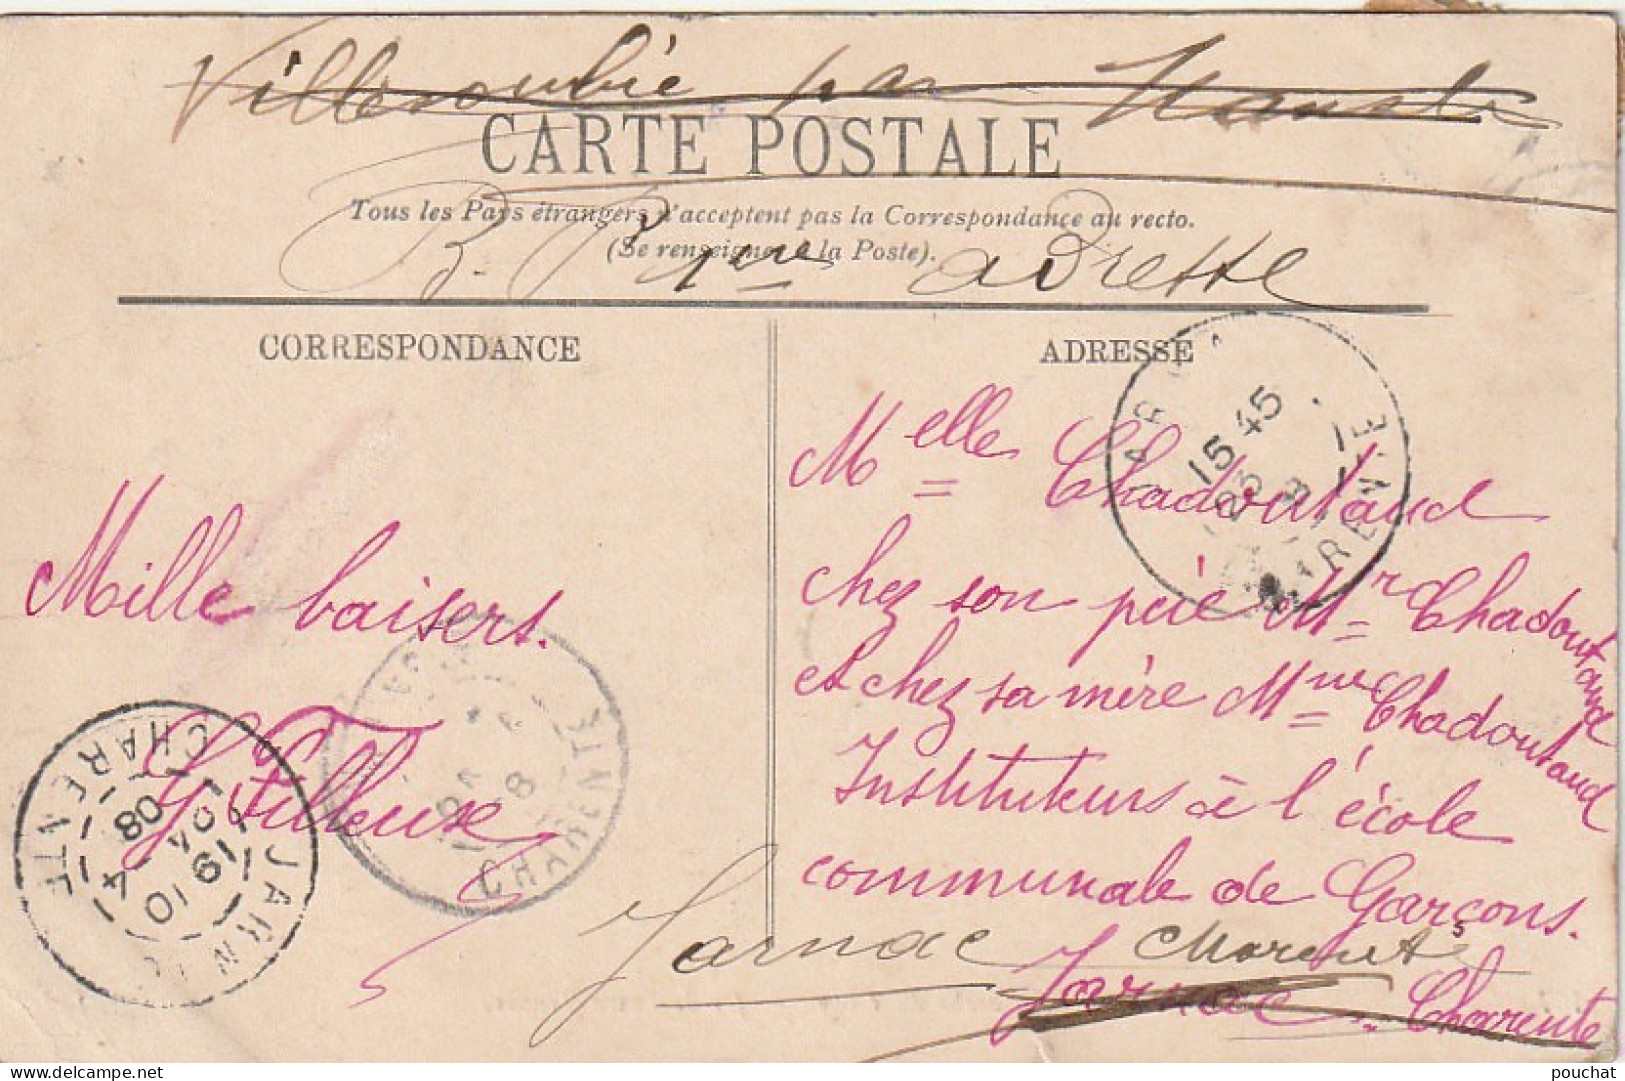 Villesoubie par
CARTE POSTALE
Tous les Pays étrangers n'acceptent pas la Correspondance au recto.
(Se renseigner à la Poste).
R. 1ere adresse
CORRESPONDANCE
ADRESSE
Mille baisers.
G Filleux
Melle Chadoutaud
chez son père Mr Chadoutaud
et chez sa mère Mme Chadoutaud
Instituteurs à l'école
communale de Garçons.
Jarnac Charente
Jarnac. Charente
15 45
23
CHARENTE
CHARENTE
8
JARNAC
CHARENTE
19 10
4
08
pouchat